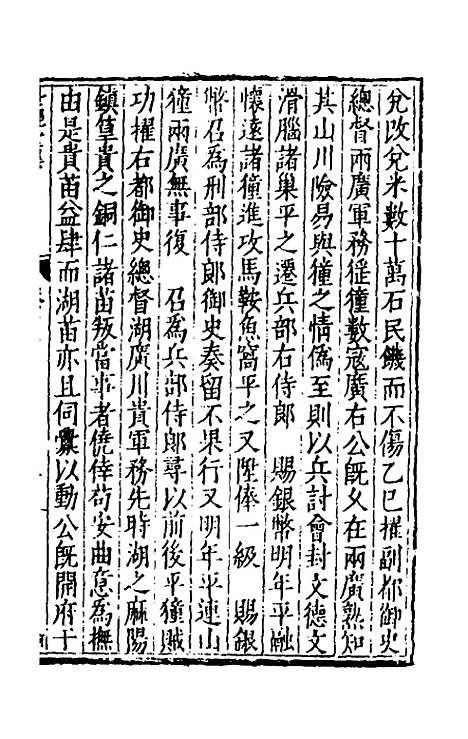 兌改兌米數十萬石民饑而不傷乙巳擢副都御史
總督兩廣軍務徭獞數寇廣右公既久在兩廣熟知
其山川險易與獞之情僞至則以兵討會封文德文
滑腦諸巢平之遷兵部右侍郎　賜銀幣明年平融
懷遠諸獞進攻馬鞍魚窩平之又陞俸一級　賜銀
幣召爲刑部侍郎御史奏留不果行又明年平連山
獞兩廣無事復　召爲兵部侍郎尋以前後平獞賊
功擢右都御史總督湖廣川貴軍務先時湖之麻陽
鎮筸貴之銅仁諸苗叛當事者僥倖苟安曲意爲撫
由是貴苗益肆而湖苗亦且伺釁以動公既開府于